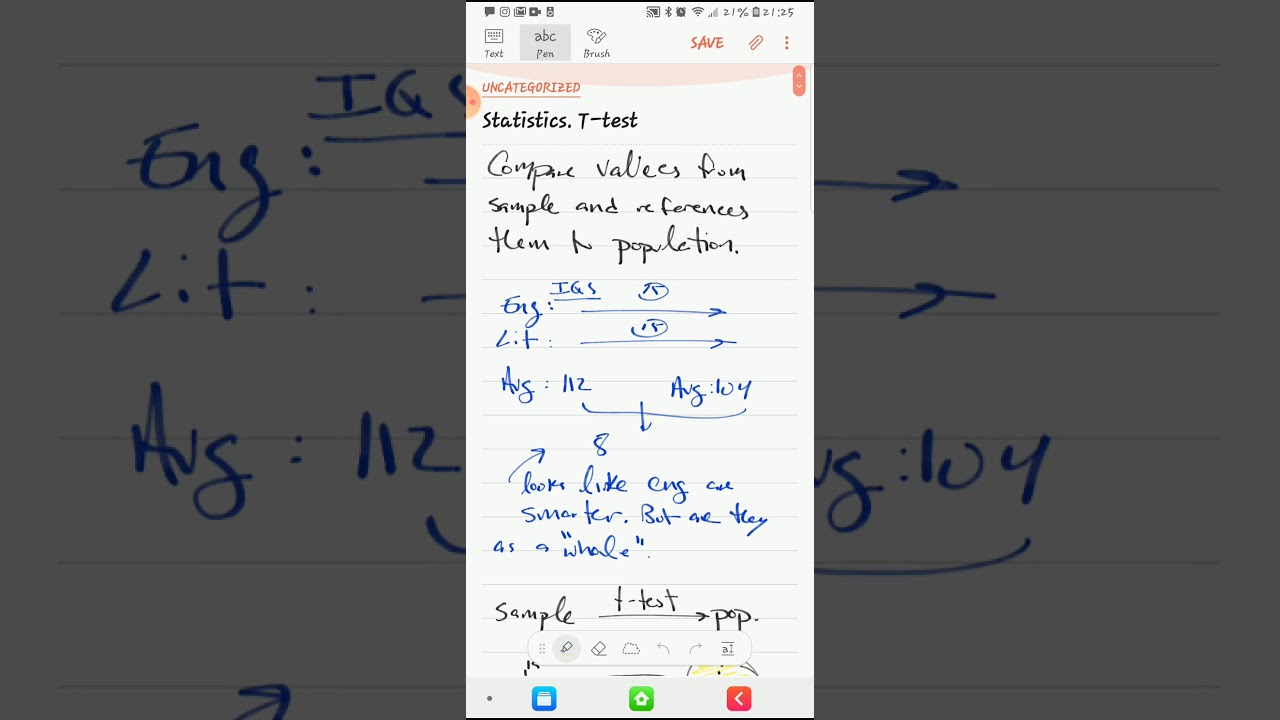 21% 21:25
Text abc Pen Brush SAVE
UNCATEGORIZED
Statistics. T-test
Compare values from
sample and references
them to population.
IQS 15
Eng:
15
Lit:
Avg: 112 Avg:104
8
looks like eng are
smarter. But are they
as a "whole".
t-test
Sample pop.